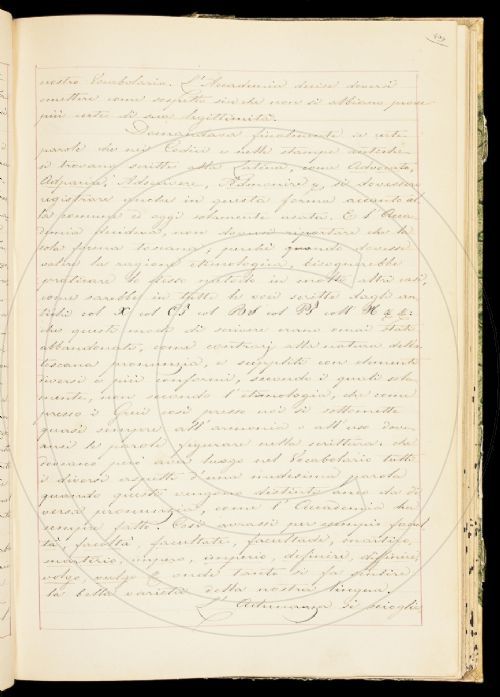 nostro Vocabolario. L'Accademia decise doversi
omettere come sospette sin che non si abbiano prove
più certe di sua legittimità.
Domandava finalmente se certe
parole che nei Codici e nelle stampe antiche
si trovano scritte alla latina, come Advocato,
Adparii, Adscrivere, Admonire &, si dovessero
registrare anche in questa forma accanto al
la comune ed oggi solamente usata. E l'Acca
demia decideva, non doversi riportare che la
sola forma toscana, perchè quando dovesse
valere la ragione etimologica, bisognerebbe
praticare lo stesso metodo in molti altri casi,
come sarebbe in tutte le voci scritte dagli an
tichi col X col Ct col Bs col Pt coll H & &:
che questi modi di scrivere erano omai stati
abbandonati, come contrarj alla natura della
toscana pronunzia, e suppliti con elementi
diversi e più conformi, secondo i quali sola
mente, non secondo l'etimologia, che come
presso i Greci così presso noi si sottomette
quasi sempre all'armonia e all'uso, dove
ansi le parole figurare nella scrittura. che
dovranno però aver luogo nel Vocabolario tutti
i diversi aspetti d'una medesima parola
quando questi vengono distinti anco da di
versa pronunzia, come l'Accademia ha
sempre fatto. Così avrassi per esempio facol
tà, facultà facultate, facultade, martiro,
martirio, impero, imperio, definire, diffinire,
volgo, vulgo &, onde tanto si fa gentile
la bella varietà della nostra lingua.
L'Adunanza si scioglie